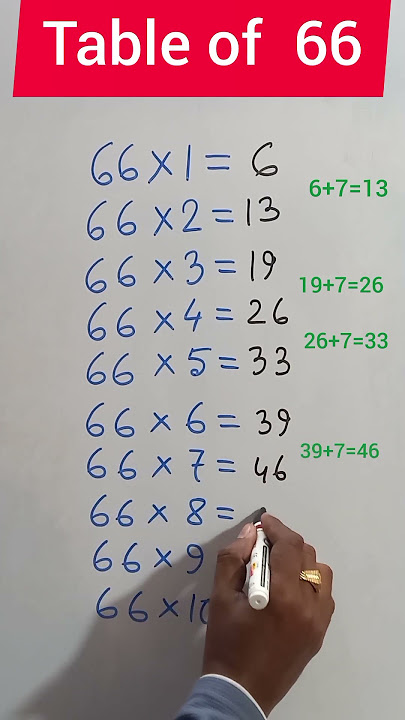 Table of 66
66×1= 6
6+7=13
66×2=13
66×3=19
19+7=26
66×4=26
26+7=33
66×5=33
66×6=39
39+7=46
66×7=46
66×8=
66×9
66×10